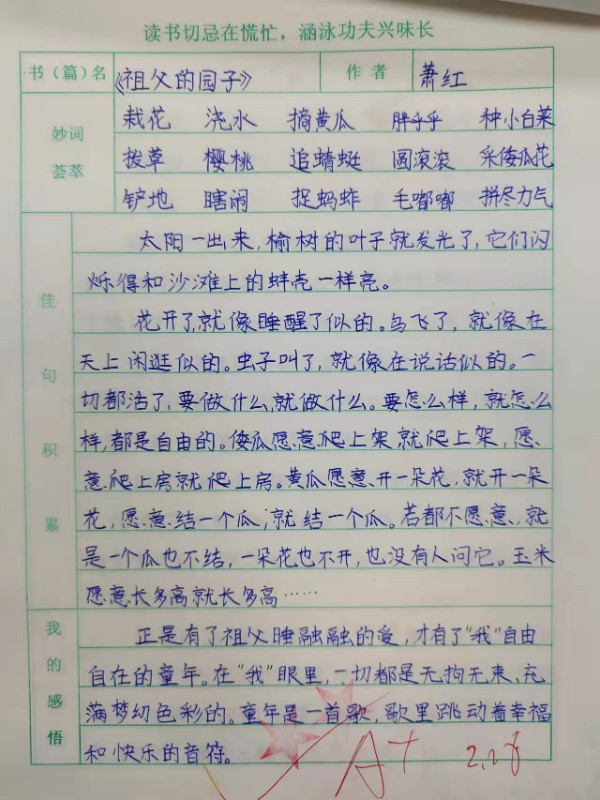 读书切忌在慌忙，涵泳功夫兴味长
书（篇）名 《祖父的园子》 作者 萧红
妙词荟萃
栽花 浇水 摘黄瓜 胖乎乎 种小白菜
拔草 樱桃 追蜻蜓 圆滚滚 采倭瓜花
铲地 瞎闹 捉蚂蚱 毛嘟嘟 拼尽力气
佳句积累
太阳一出来，榆树的叶子就发光了，它们闪
烁得和沙滩上的蚌壳一样亮。
花开了，就像睡醒了似的。鸟飞了，就像在
天上闲逛似的。虫子叫了，就像在说话似的。一
切都活了，要做什么，就做什么。要怎么样，就怎么
样，都是自由的。倭瓜愿意爬上架就爬上架，愿
意爬上房就爬上房。黄瓜愿意开一朵花，就开一朵
花，愿意结一个瓜，就结一个瓜。若都不愿意，就
是一个瓜也不结，一朵花也不开，也没有人问它。玉米
愿意长多高就长多高……
我的感悟
正是有了祖父暖融融的爱，才有了“我”自由
自在的童年。在“我”眼里，一切都是无拘无束、充
满梦幻色彩的。童年是一首歌，歌里跳动着幸福
和快乐的音符。
A+ 2.28